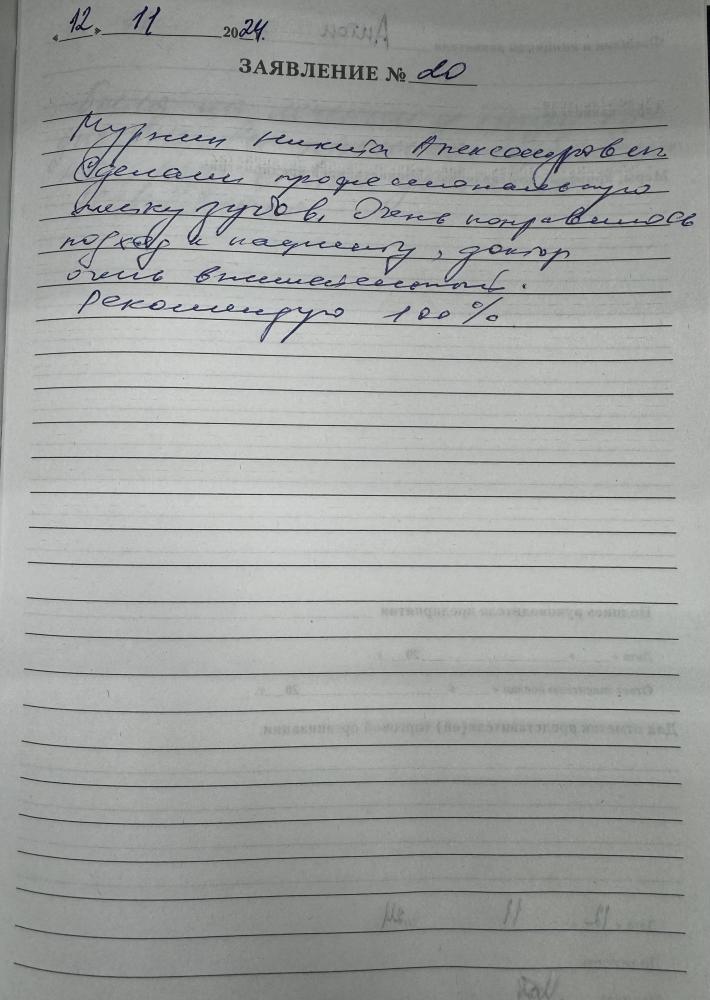 « 12 » 11 2024 г.
ЗАЯВЛЕНИЕ № 20
Никита Александрович
Сделали профессиональную
чистку зубов. Очень понравилось
подход к пациенту, доктор
очень внимательный.
Рекомендую 100%